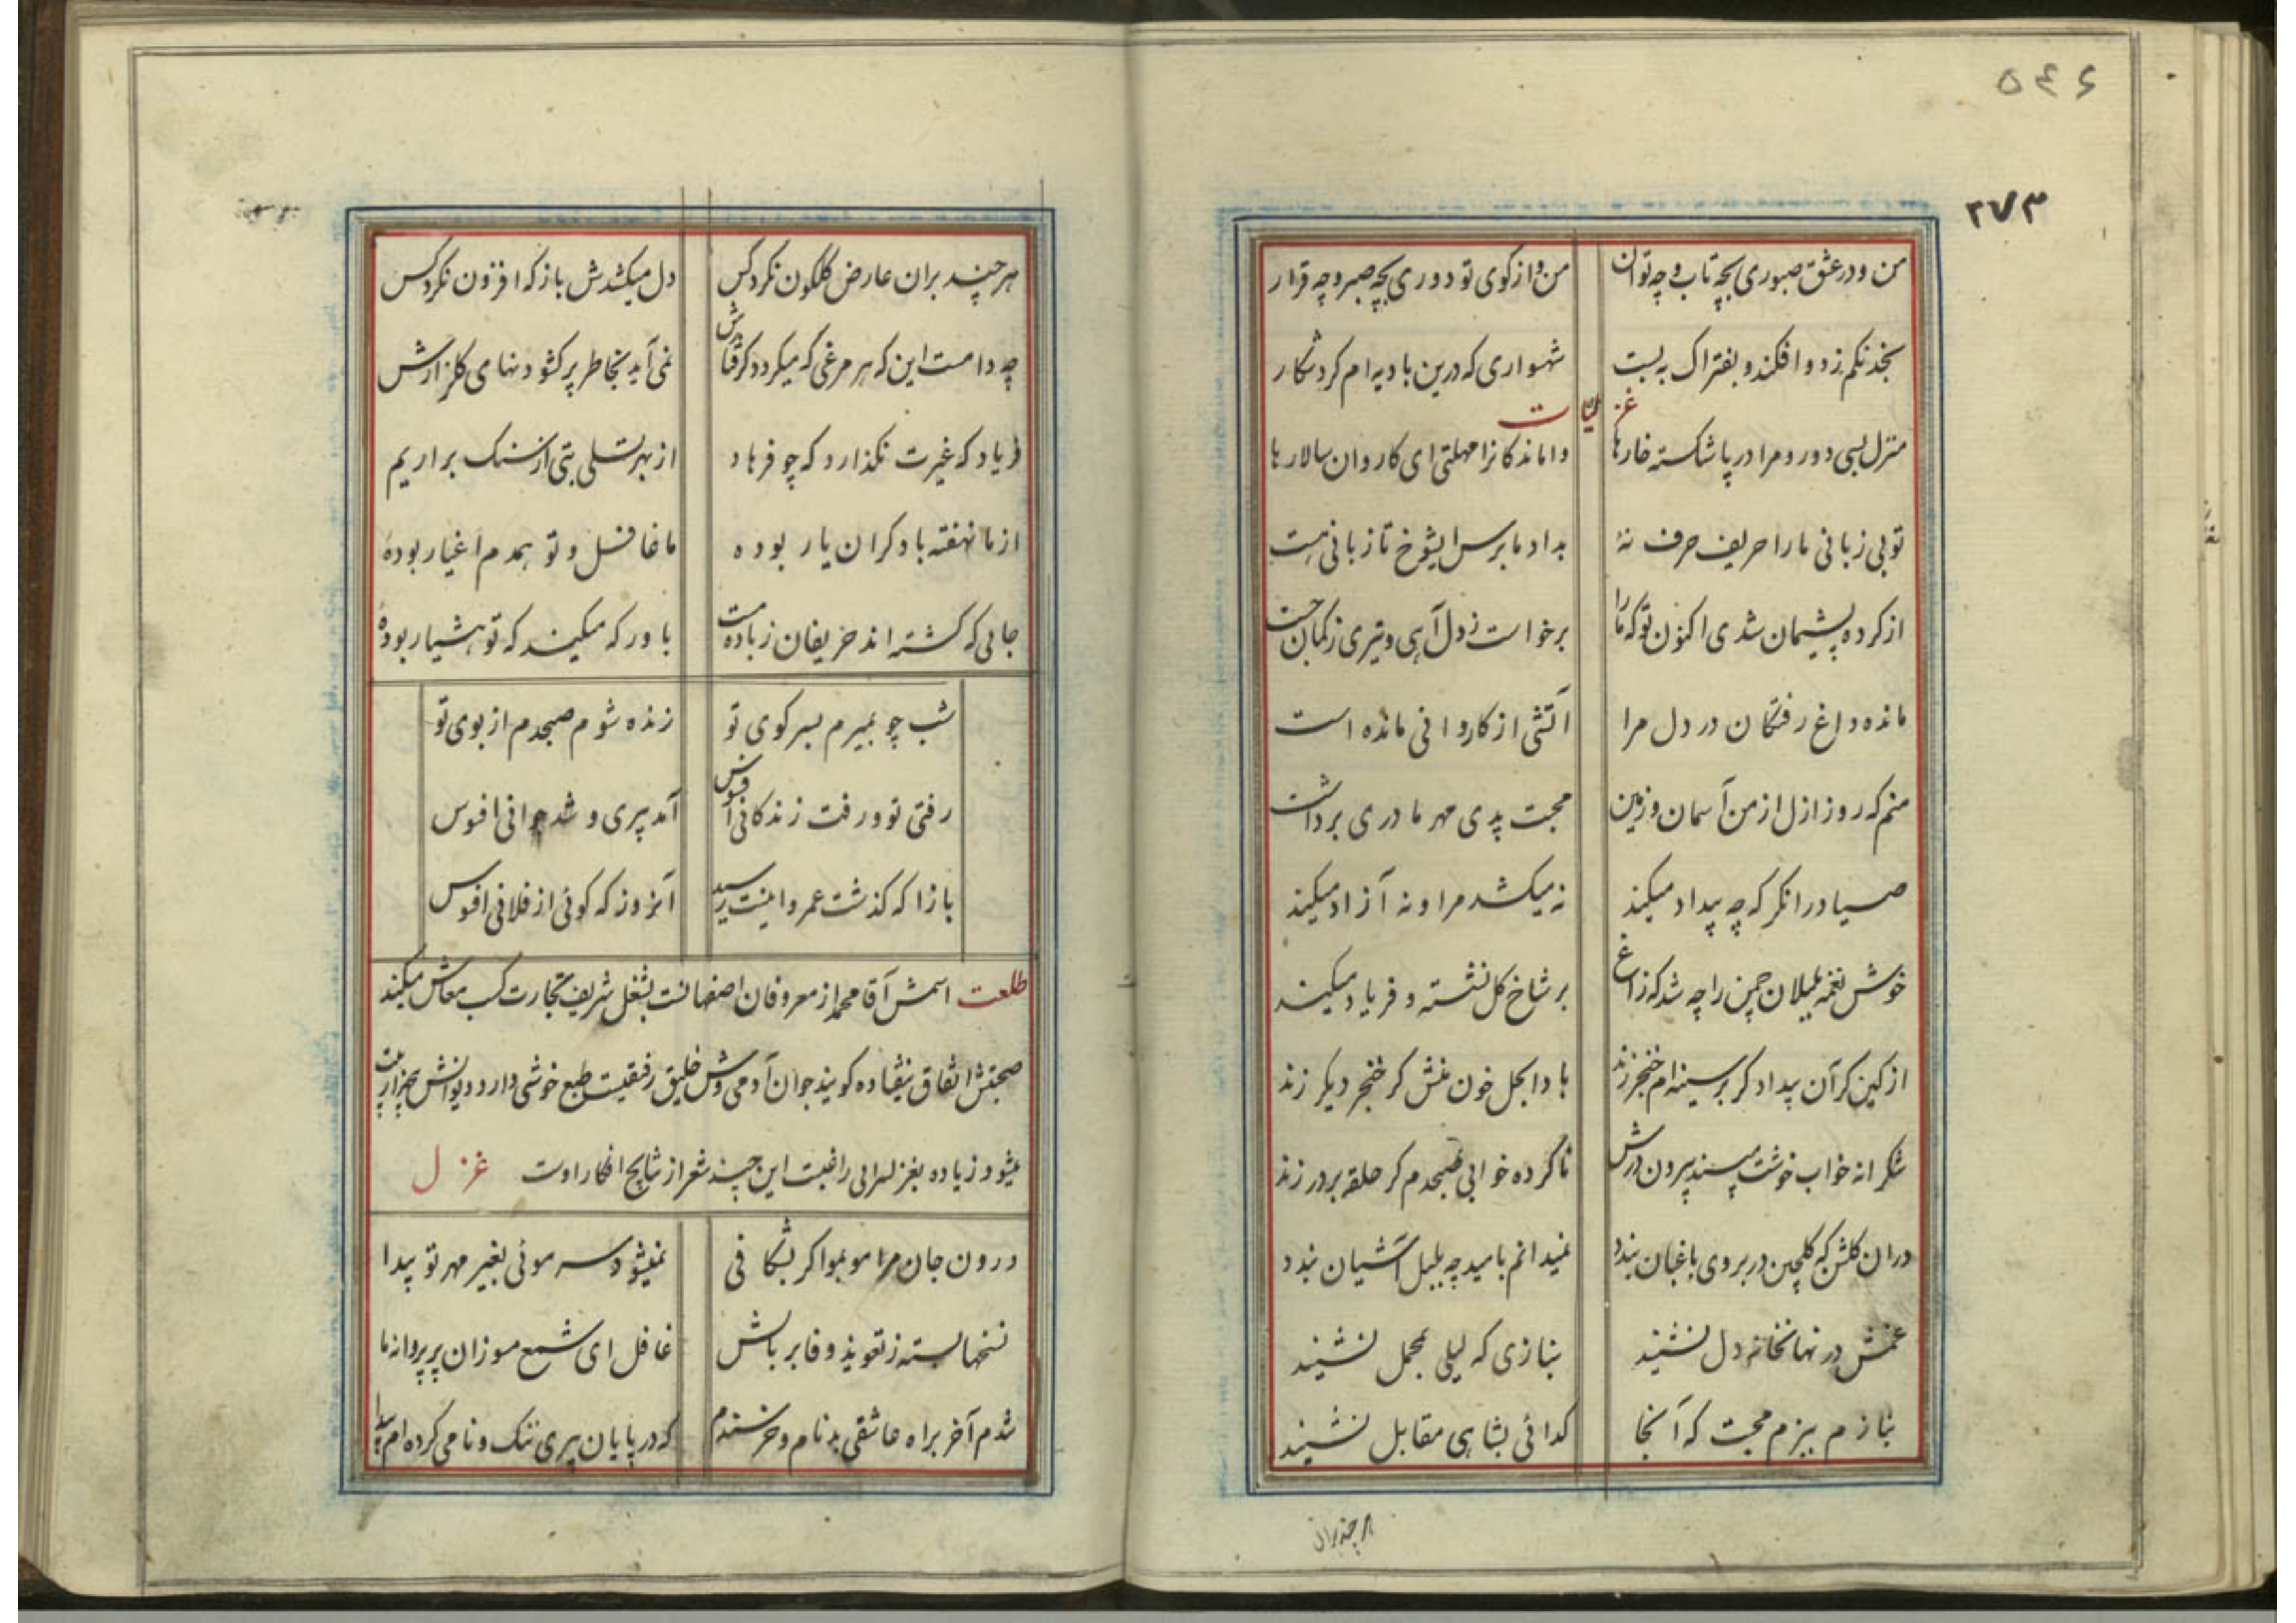 ۵۴۶
۲۷۳
من و در عشق صبوری بچه تاب و چه توان من و از کوی تو دوری بچه صبر و چه قرار
بخدنکم زد و افکند و بفتراک به بست شهسواری که درین بادیه ام کرد شکار
غزلیات
منزل بسی دور و مرا در پا شکسته خارها واماندکانرا مهلتی ای کاروان سالارها
تو بی زبانی ما را حریف حرف نهٔ بداد ما برس ایشوخ تا زبانی هست
از کرده پشیمان شدی اکنون تو که ما را برخواست ز دل آهی و تیری ز کمان جست
مانده داغ رفتکان در دل مرا آتشی از کاروانی مانده است
منم که روز ازل از من آسمان و زمین محبت پدری مهر مادری برداشت
صیاد را نکر که چه بیداد میکند نه میکشد مرا و نه آزاد میکند
خوش نغمه بلبلان چمن را چه شد که زاغ بر شاخ کل نشسته و فریاد میکند
از کین کر آن بیداد کر بر سینه ام خنجر زند بادا بحل خون منش کر خنجر دیکر زند
شکرانه خواب خوشت مپسند بیرون درش ناکرده خوابی صبحدم کر حلقه بر در زند
در ان کلشن که کلچین در بروی باغبان بندد نمیدانم بامید چه بلبل آشیان بندد
غمش در نهانخانه دل نشیند بنازی که لیلی بمحمل نشیند
بنازم ببزم محبت که آنجا کدائی بشاهی مقابل نشیند
هر چند بران
هر چند بران عارض کلکون نکرد کس دل میکشدش باز که افزون نکرد کس
چه دامست این که هر مرغی که میکردد کرفتارش نمی آید بخاطر پر کشودنهای کلزارش
فریاد که غیرت نکذارد که چو فرهاد از بهر تسلی بتی از سنک براریم
از ما نهفته با دکران یار بوده ما غافل و تو همدم اغیار بودهٔ
جائی که کشته اند حریفان ز باده مست باور که میکند که تو هشیار بودهٔ
شب چو بمیرم بسر کوی تو زنده شوم صبحدم از بوی تو
رفتی تو و رفت زندکانی افسوس آمد پیری و شد جوانی افسوس
باز ا که کذشت عمر و اینت رسید آنروز که کوئی از فلانی افسوس
طلعت اسمش آقا محمد از معروفان اصفهانست بشغل شریف تجارت کسب معاش میکند
صحبتش اتفاق نیفتاده کویند جوان آدمی وش خلیق رفیقیست طبع خوشی دارد دیوانش بهزار بیت
میشود زیاده بغزلسرائی راغبست این چند شعر از نتایج افکار اوست غزل
درون جان مرا مو بموا کر بشکافی نمیشود سر موئی بغیر مهر تو پیدا
نسخها بسته ز تعویذ وفا بر بالش غافل ای شمع مسوزان پر پروانه ما
شدم آخر براه عاشقی بدنام و خرسندم که در پایان پیری ننک و نامی کرده ام پیدا